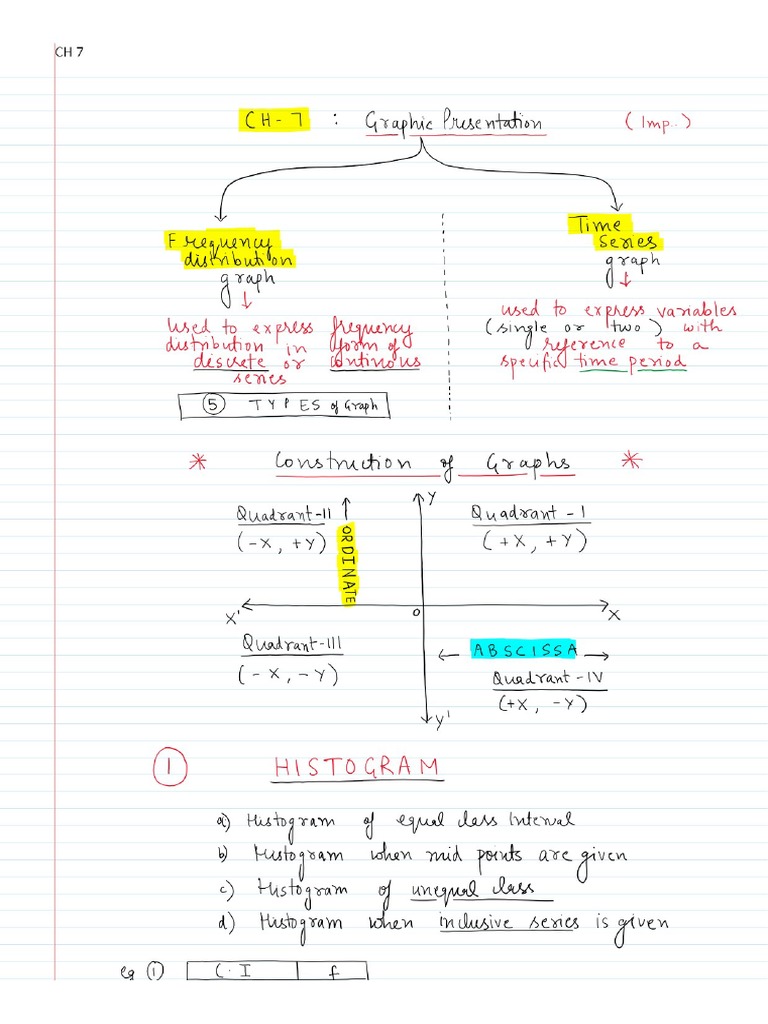 CH 7
CH-7 : Graphic Presentation (Imp..)
Frequency
distribution
graph
used to express frequency
distribution in form of
discrete or continous
series
5 TYPES of Graph
Time
Series
graph
used to express variables
(single or two) with
reference to a
specific time period
* Construction of Graphs *
Quadrant-II
(-X, +Y)
ORDINATE
Y
Quadrant-I
(+X, +Y)
X'
O
X
Quadrant-III
(-X, -Y)
ABSCISSA
Quadrant-IV
(+X, -Y)
Y'
1 HISTOGRAM
a) Histogram of equal class Interval
b) Histogram when mid points are given
c) Histogram of unequal class
d) Histogram when inclusive series is given
eg 1 C.I f